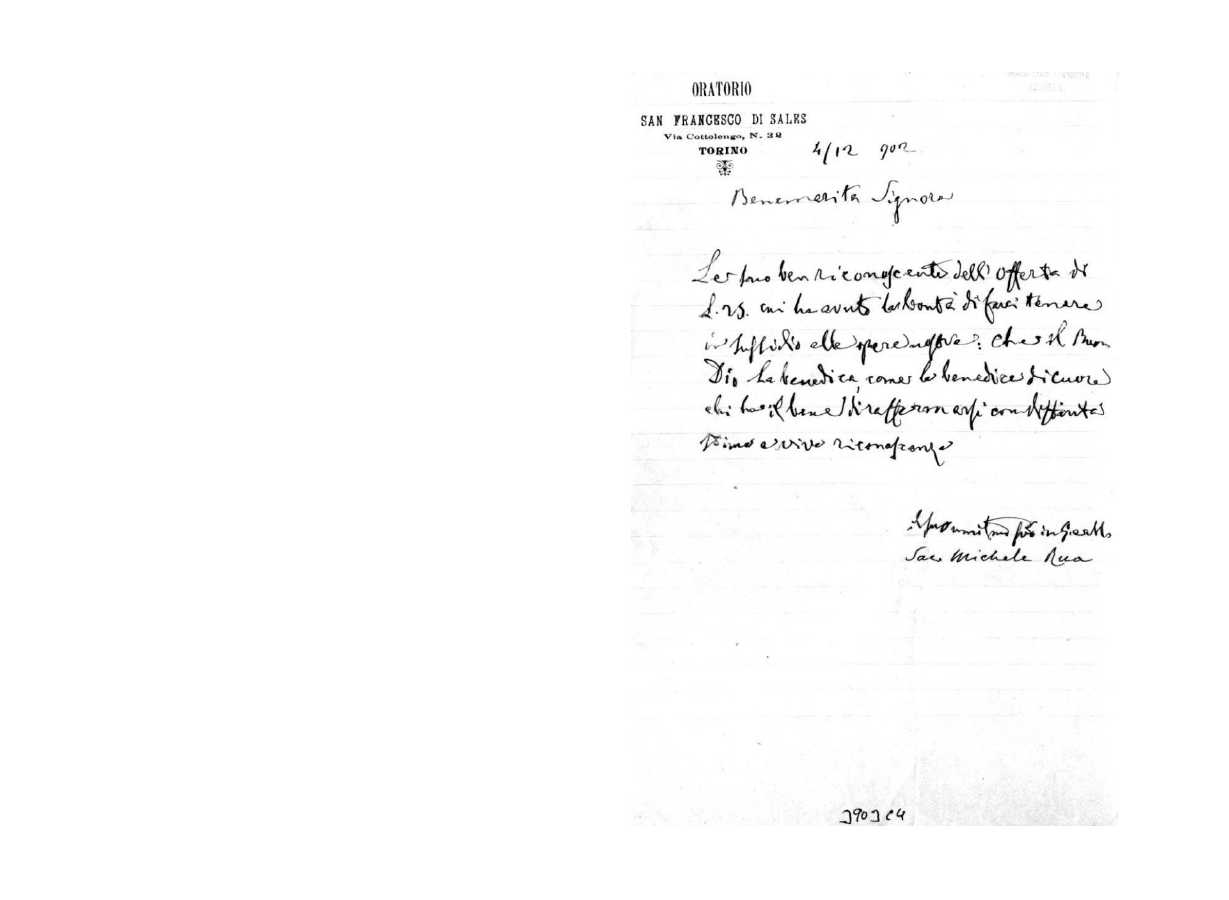 ORATORIO
SAN FRANCESCO DI SALES
Via Cottolengo, N. 32
TORINO
4/12 902
Benemerita Signora
Le sono ben riconoscente dell' offerta di
L. 25. cui ha avuto la bontà di farci tenere
in sussidio alle opere nostre: che il Buon
Dio la benedica, come la benedice di cuore
chi ha il bene di raffermarsi con distinta
stima e viva riconoscenza
Sac Michele Rua